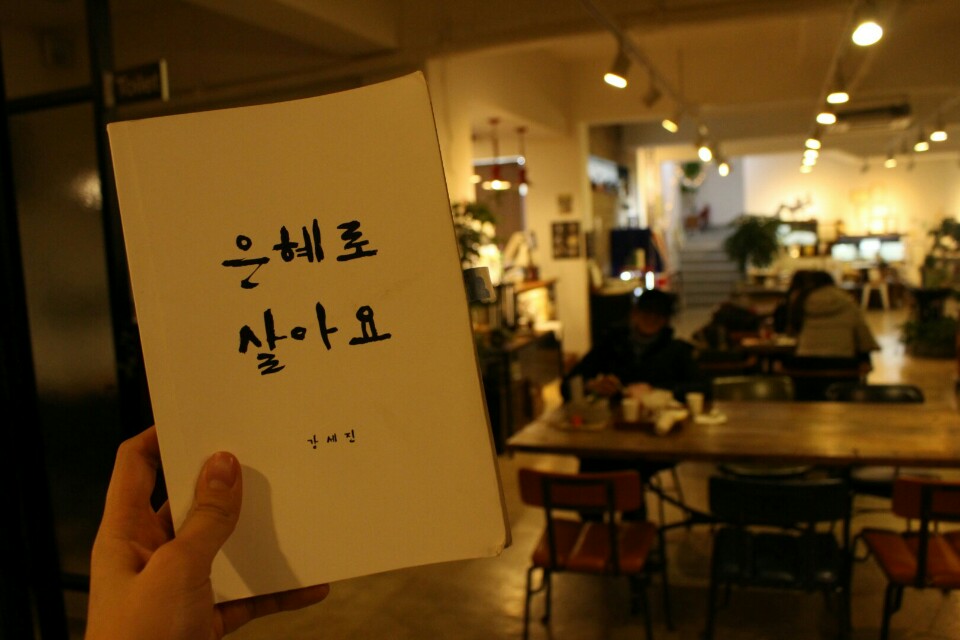 Toilet
은혜로
살아요
강세진